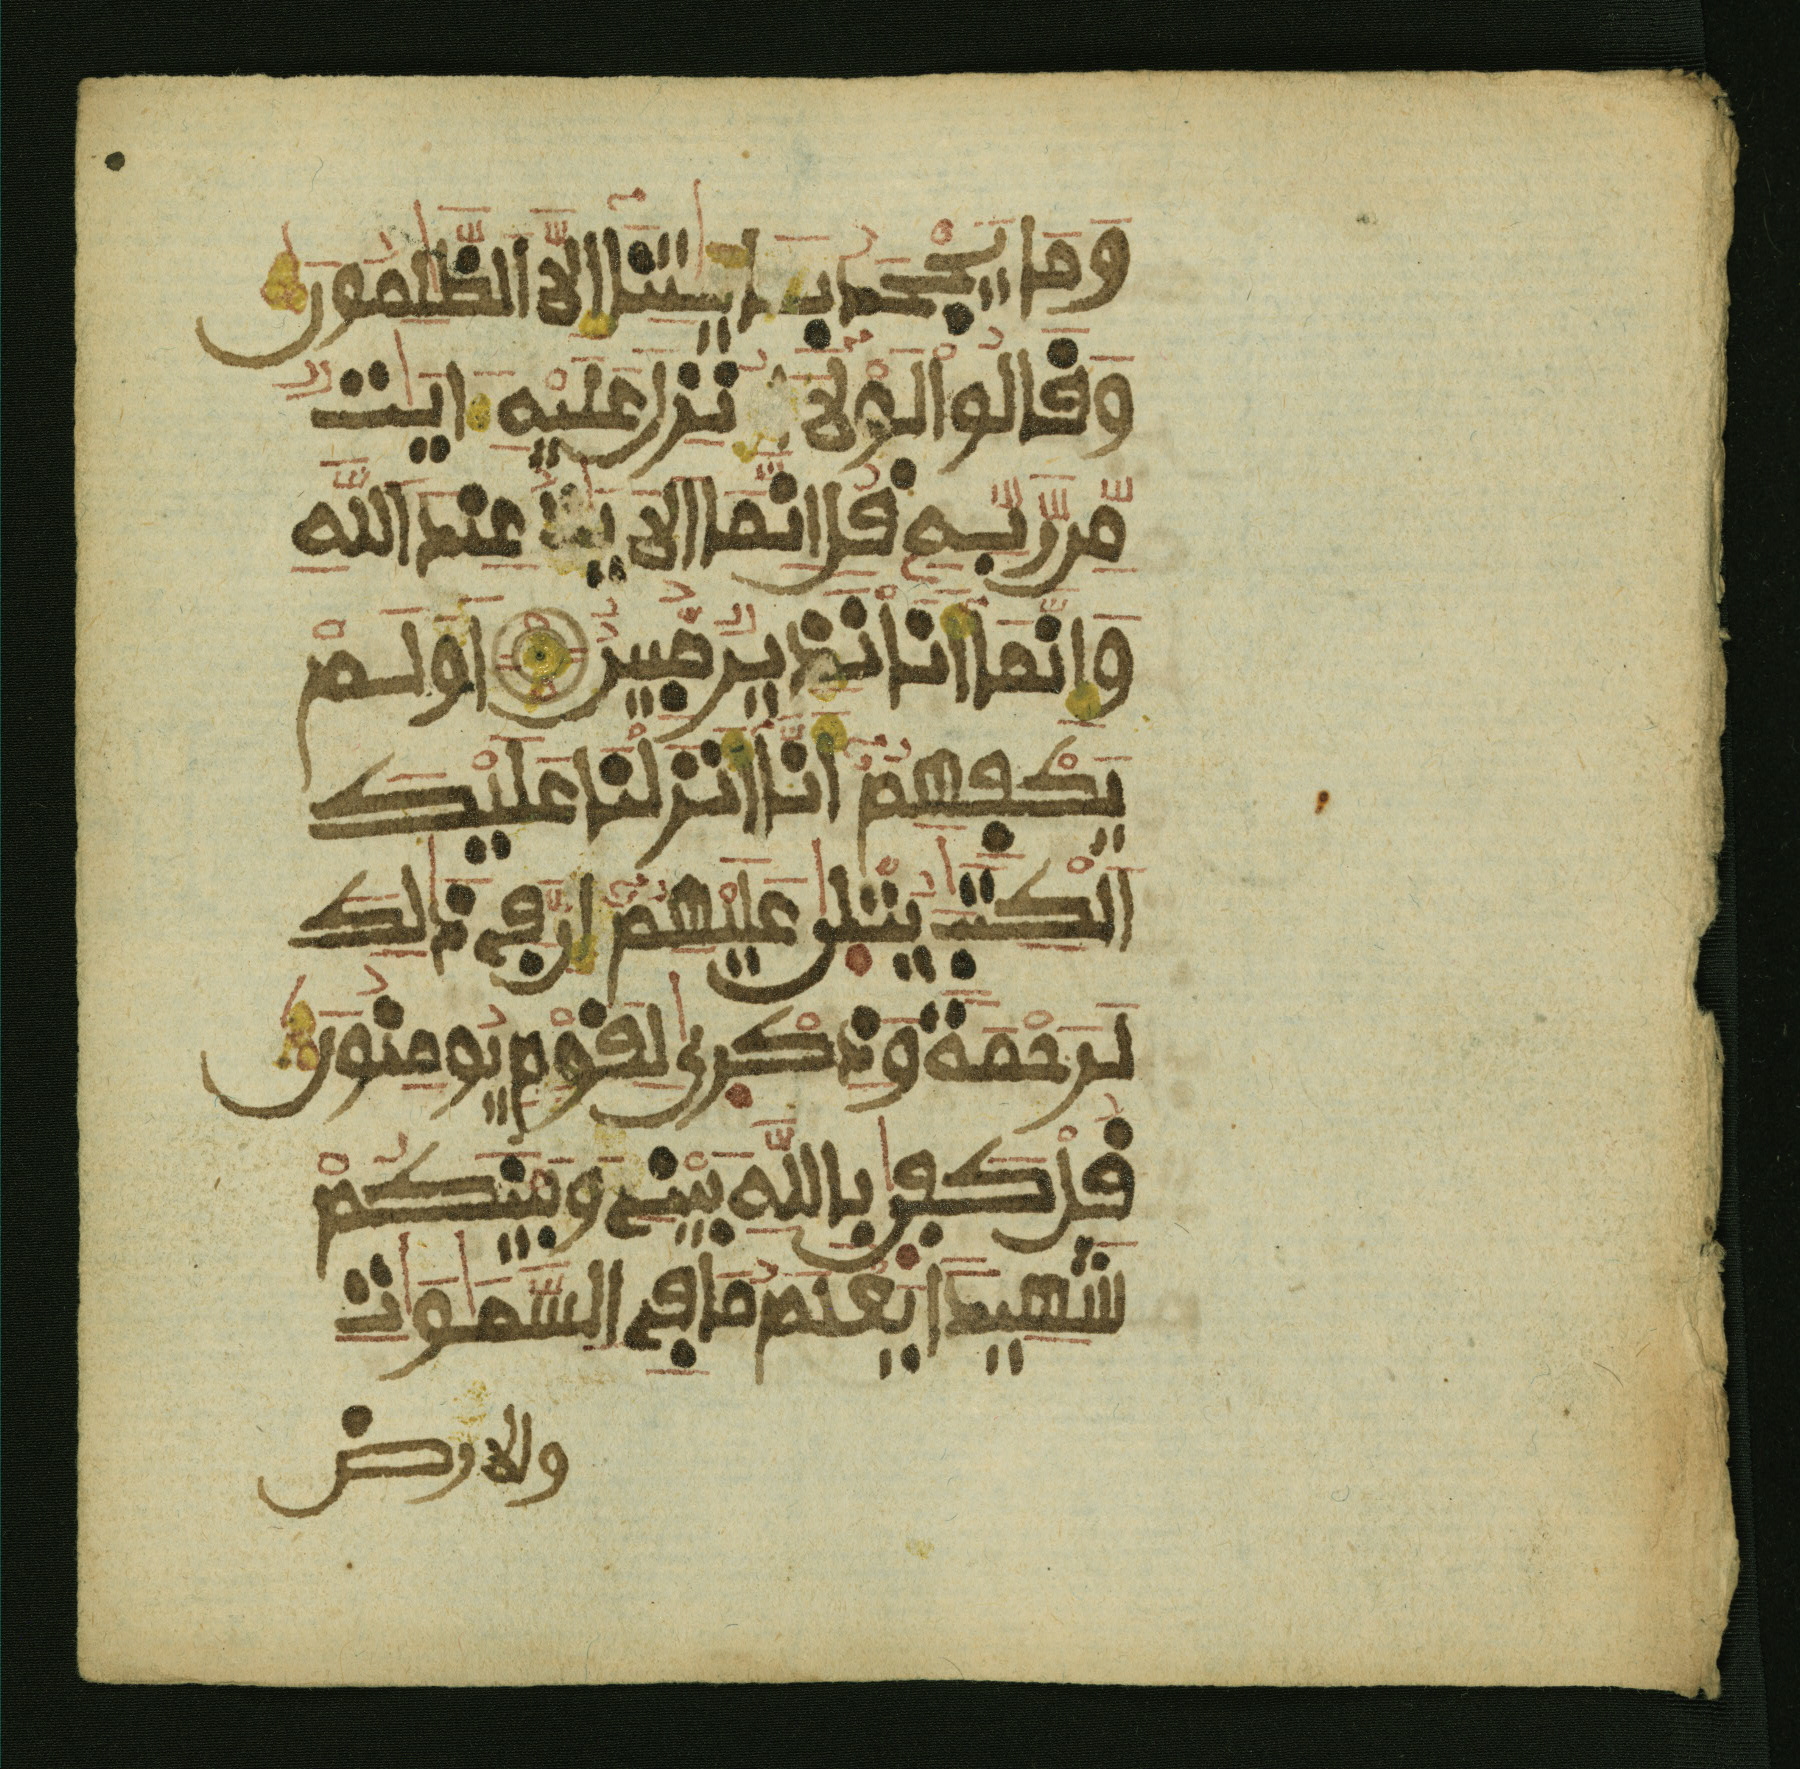 وَمَا يَجْحَدُ بِـَٔايَٰتِنَا إِلَّا ٱلظَّٰلِمُونَ
وَقَالُوا۟ لَوْلَا نُزِّلَ عَلَيْهِ ءَايَٰتٌ
مِّن رَّبِّهِۦ قُلْ إِنَّمَا ٱلْأَيَٰتُ عِندَ ٱللَّهِ
وَإِنَّمَا أَنَا نَذِيرٌ مُّبِينٌ أَوَلَمْ
يَكْفِهِمُۥ أَنَّا أَنزَلْنَا عَلَيْكَ
ٱلْكِتَٰبَ يُتْلَىٰ عَلَيْهِمُۥ إِنَّ فِى ذَٰلِكَ
لَرَحْمَةً وَذِكْرَىٰ لِقَوْمٍ يُومِنُونَ
قُلْ كَفَىٰ بِٱللَّهِ بَيْنِى وَبَيْنَكُمْ
شَهِيدًا يَعْلَمُ مَا فِى ٱلسَّمَٰوَٰتِ
والارض